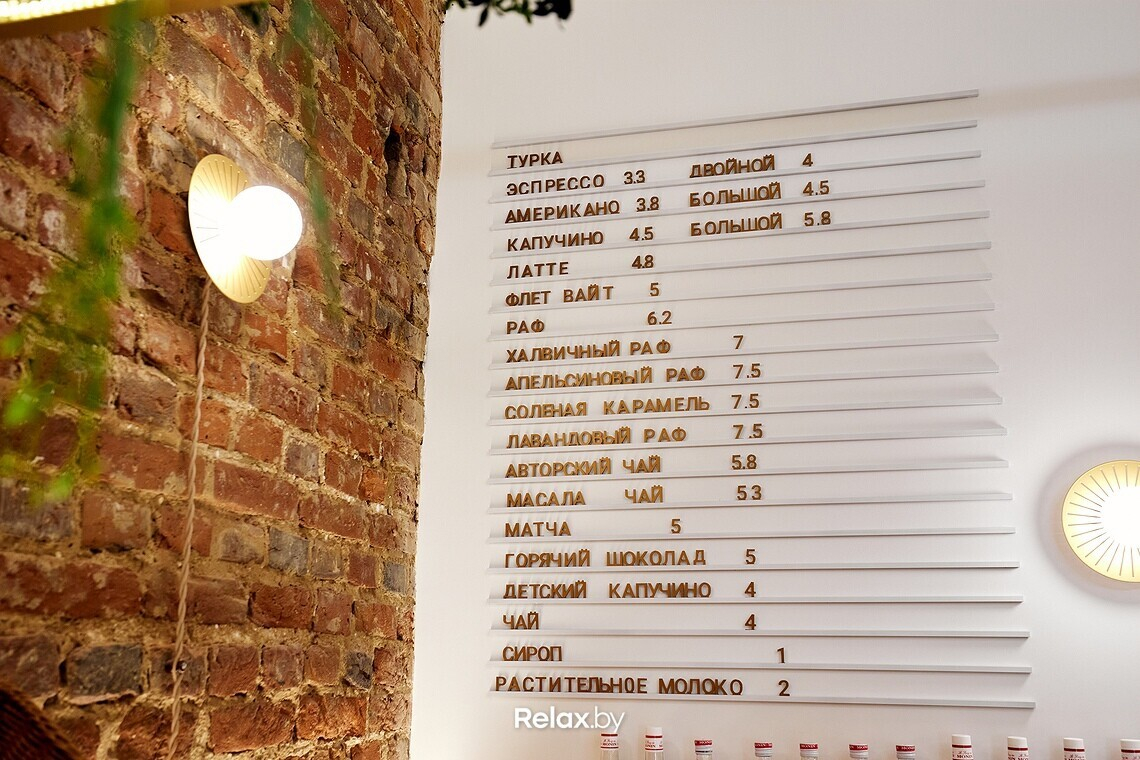 ТУРКА
ЭСПРЕССО 3.3 ДВОЙНОЙ 4
АМЕРИКАНО 3.8 БОЛЬШОЙ 4.5
КАПУЧИНО 4.5 БОЛЬШОЙ 5.8
ЛАТТЕ 4.8
ФЛЕТ ВАЙТ 5
РАФ 6.2
ХАЛВИЧНЫЙ РАФ 7
АПЕЛЬСИНОВЫЙ РАФ 7.5
СОЛЕНАЯ КАРАМЕЛЬ 7.5
ЛАВАНДОВЫЙ РАФ 7.5
АВТОРСКИЙ ЧАЙ 5.8
МАСАЛА ЧАЙ 5 3
МАТЧА 5
ГОРЯЧИЙ ШОКОЛАД 5
ДЕТСКИЙ КАПУЧИНО 4
ЧАЙ 4
СИРОП 1
РАСТИТЕЛЬНОЕ МОЛОКО 2
Relax.by